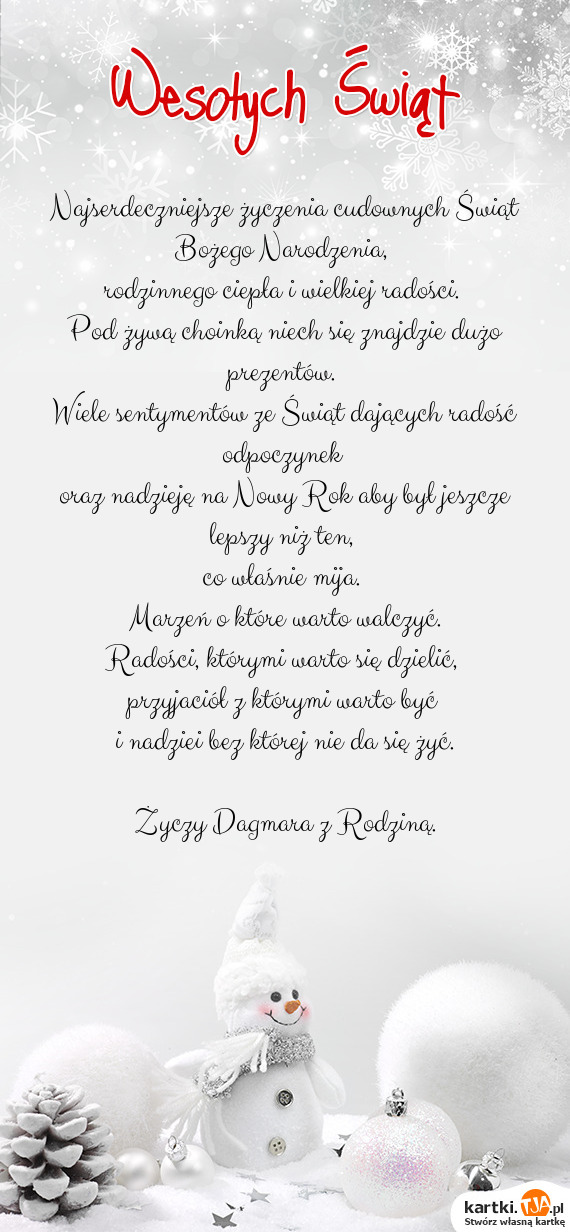 Wesołych Świąt
Najserdeczniejsze życzenia cudownych Świąt
Bożego Narodzenia,
rodzinnego ciepła i wielkiej radości.
Pod żywą choinką niech się znajdzie dużo
prezentów.
Wiele sentymentów ze Świąt dających radość
odpoczynek
oraz nadzieję na Nowy Rok aby był jeszcze
lepszy niż ten,
co właśnie mija.
Marzeń o które warto walczyć.
Radości, którymi warto się dzielić,
przyjaciół z którymi warto być
i nadziei bez której nie da się żyć.
Życzy Dagmara z Rodziną.
kartki.TJA.pl
Stwórz własną kartkę